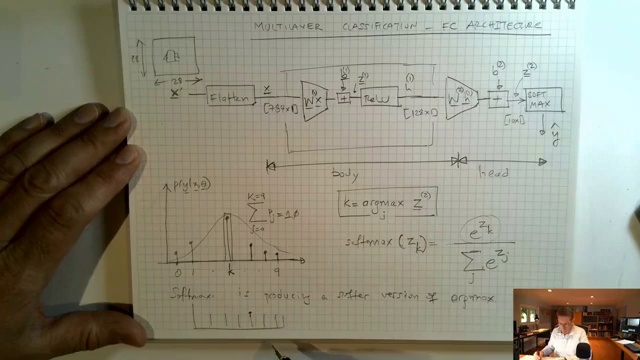 MULTILAYER CLASSIFICATION - FC ARCHITECTURE
28
28
X'
Flatten
x
[784x1]
W⁽¹⁾x
b⁽¹⁾
+
z⁽¹⁾
ReLU
h⁽¹⁾
[128x1]
W⁽²⁾h⁽¹⁾
b⁽²⁾
+
z⁽²⁾
[10x1]
SOFT
MAX
ŷ
body
head
p(y|x,θ)
K=9
Σ ŷj = 1.0
j=0
0 1 . . k 9
k = argmax z⁽²⁾
j
softmax (zk) = e^zk / Σj e^zj
Softmax is producing a softer version of argmax